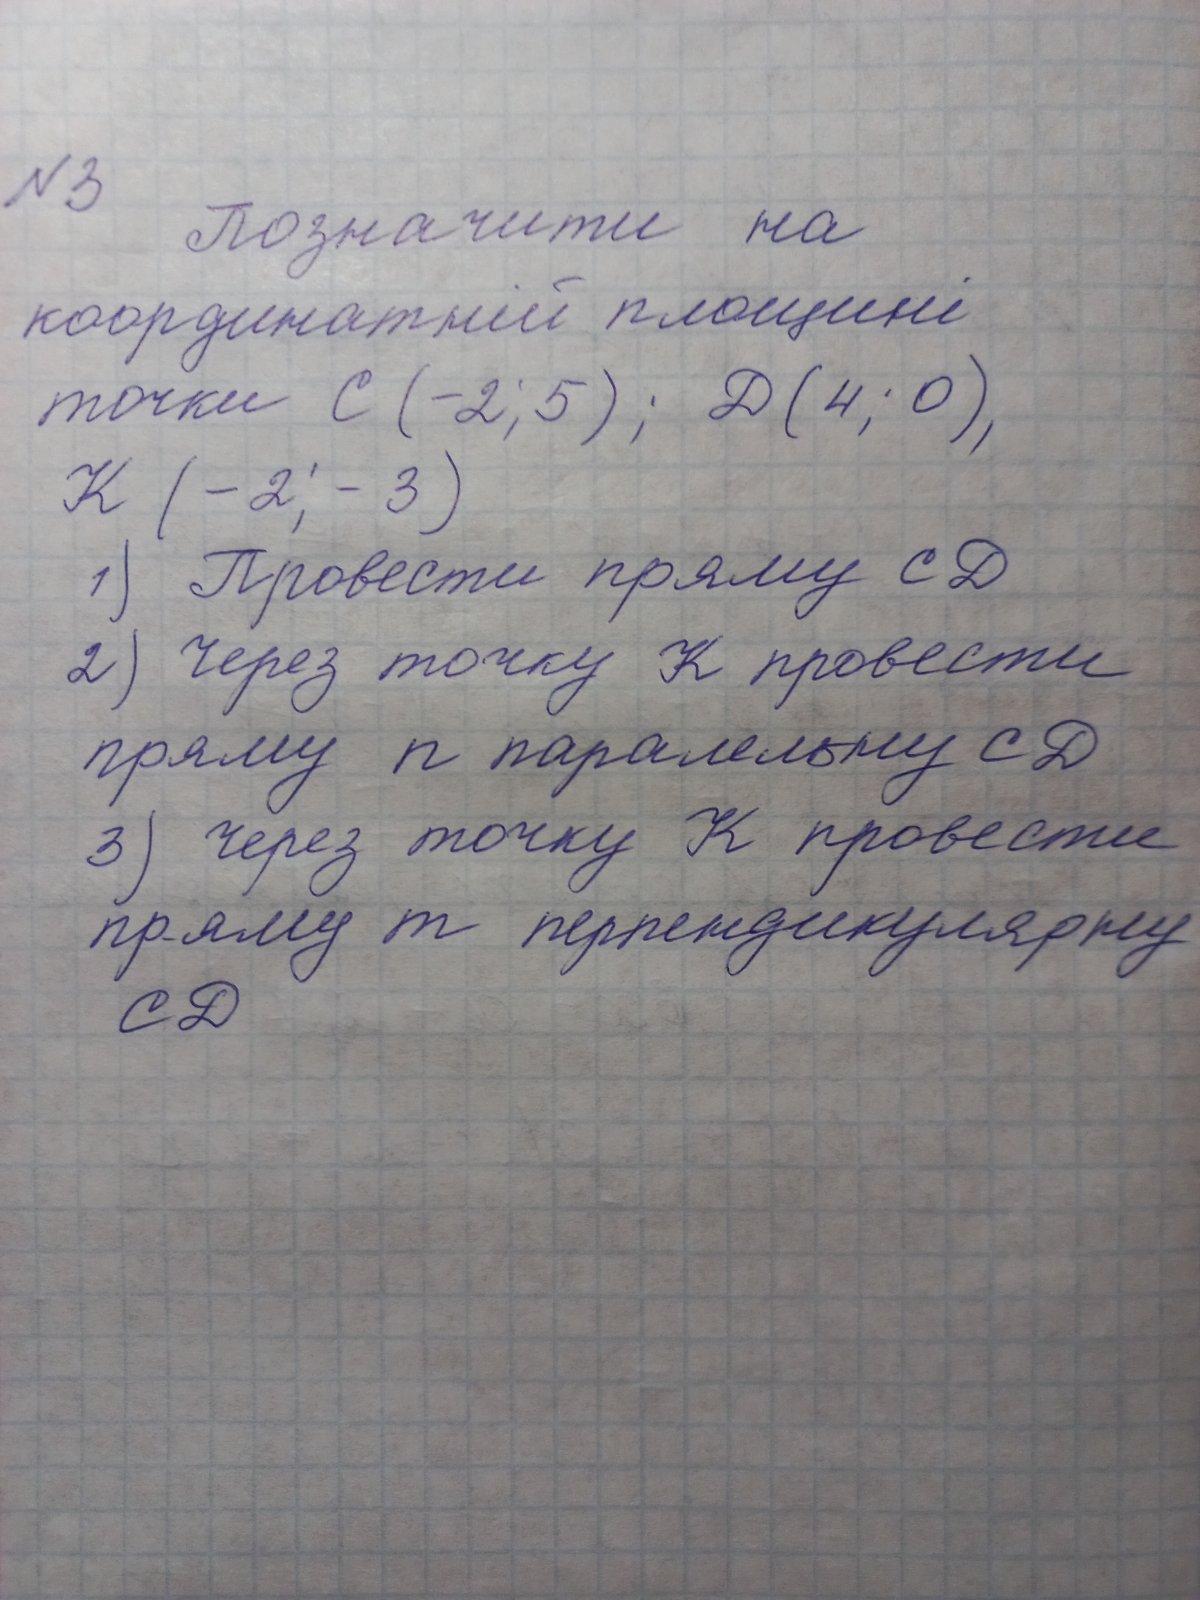 №3
Позначити на
координатній площині
точки С (-2; 5); Д (4; 0),
К (-2; -3)
1) Провести пряму СД
2) Через точку К провести
пряму п паралельну СД
3) Через точку К провести
пряму т перпендикулярну
СД